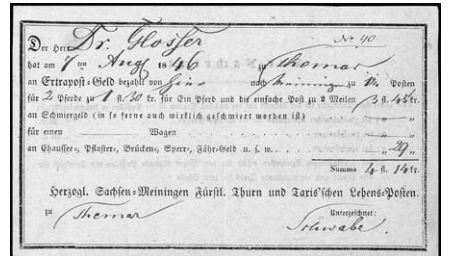 No 40
Der Herr Dr. Glosser
hat am 7ten Aug 1846 zu Themar
an Extrapost-Geld bezahlt von hier nach Meiningen zu 1¼ Posten
für 2 Pferde zu 1 fl. 30 kr. für Ein Pferd und die einfache Post zu 2 Meilen 3 fl. 45 kr.
an Schmiergeld (in so ferne auch wirklich geschmiert worden ist) „ „
für einen Wagen „ „
an Chaussee-, Pflaster-, Brücken-, Sperr-, Fähr-Geld u. s. w. „ 29 „
Summa 4 fl. 14 kr.
Herzogl. Sachsen-Meiningen Fürstl. Thurn und Taxis'schen Lehens-Posten.
zu Themar Unterzeichnet:
Schwabe